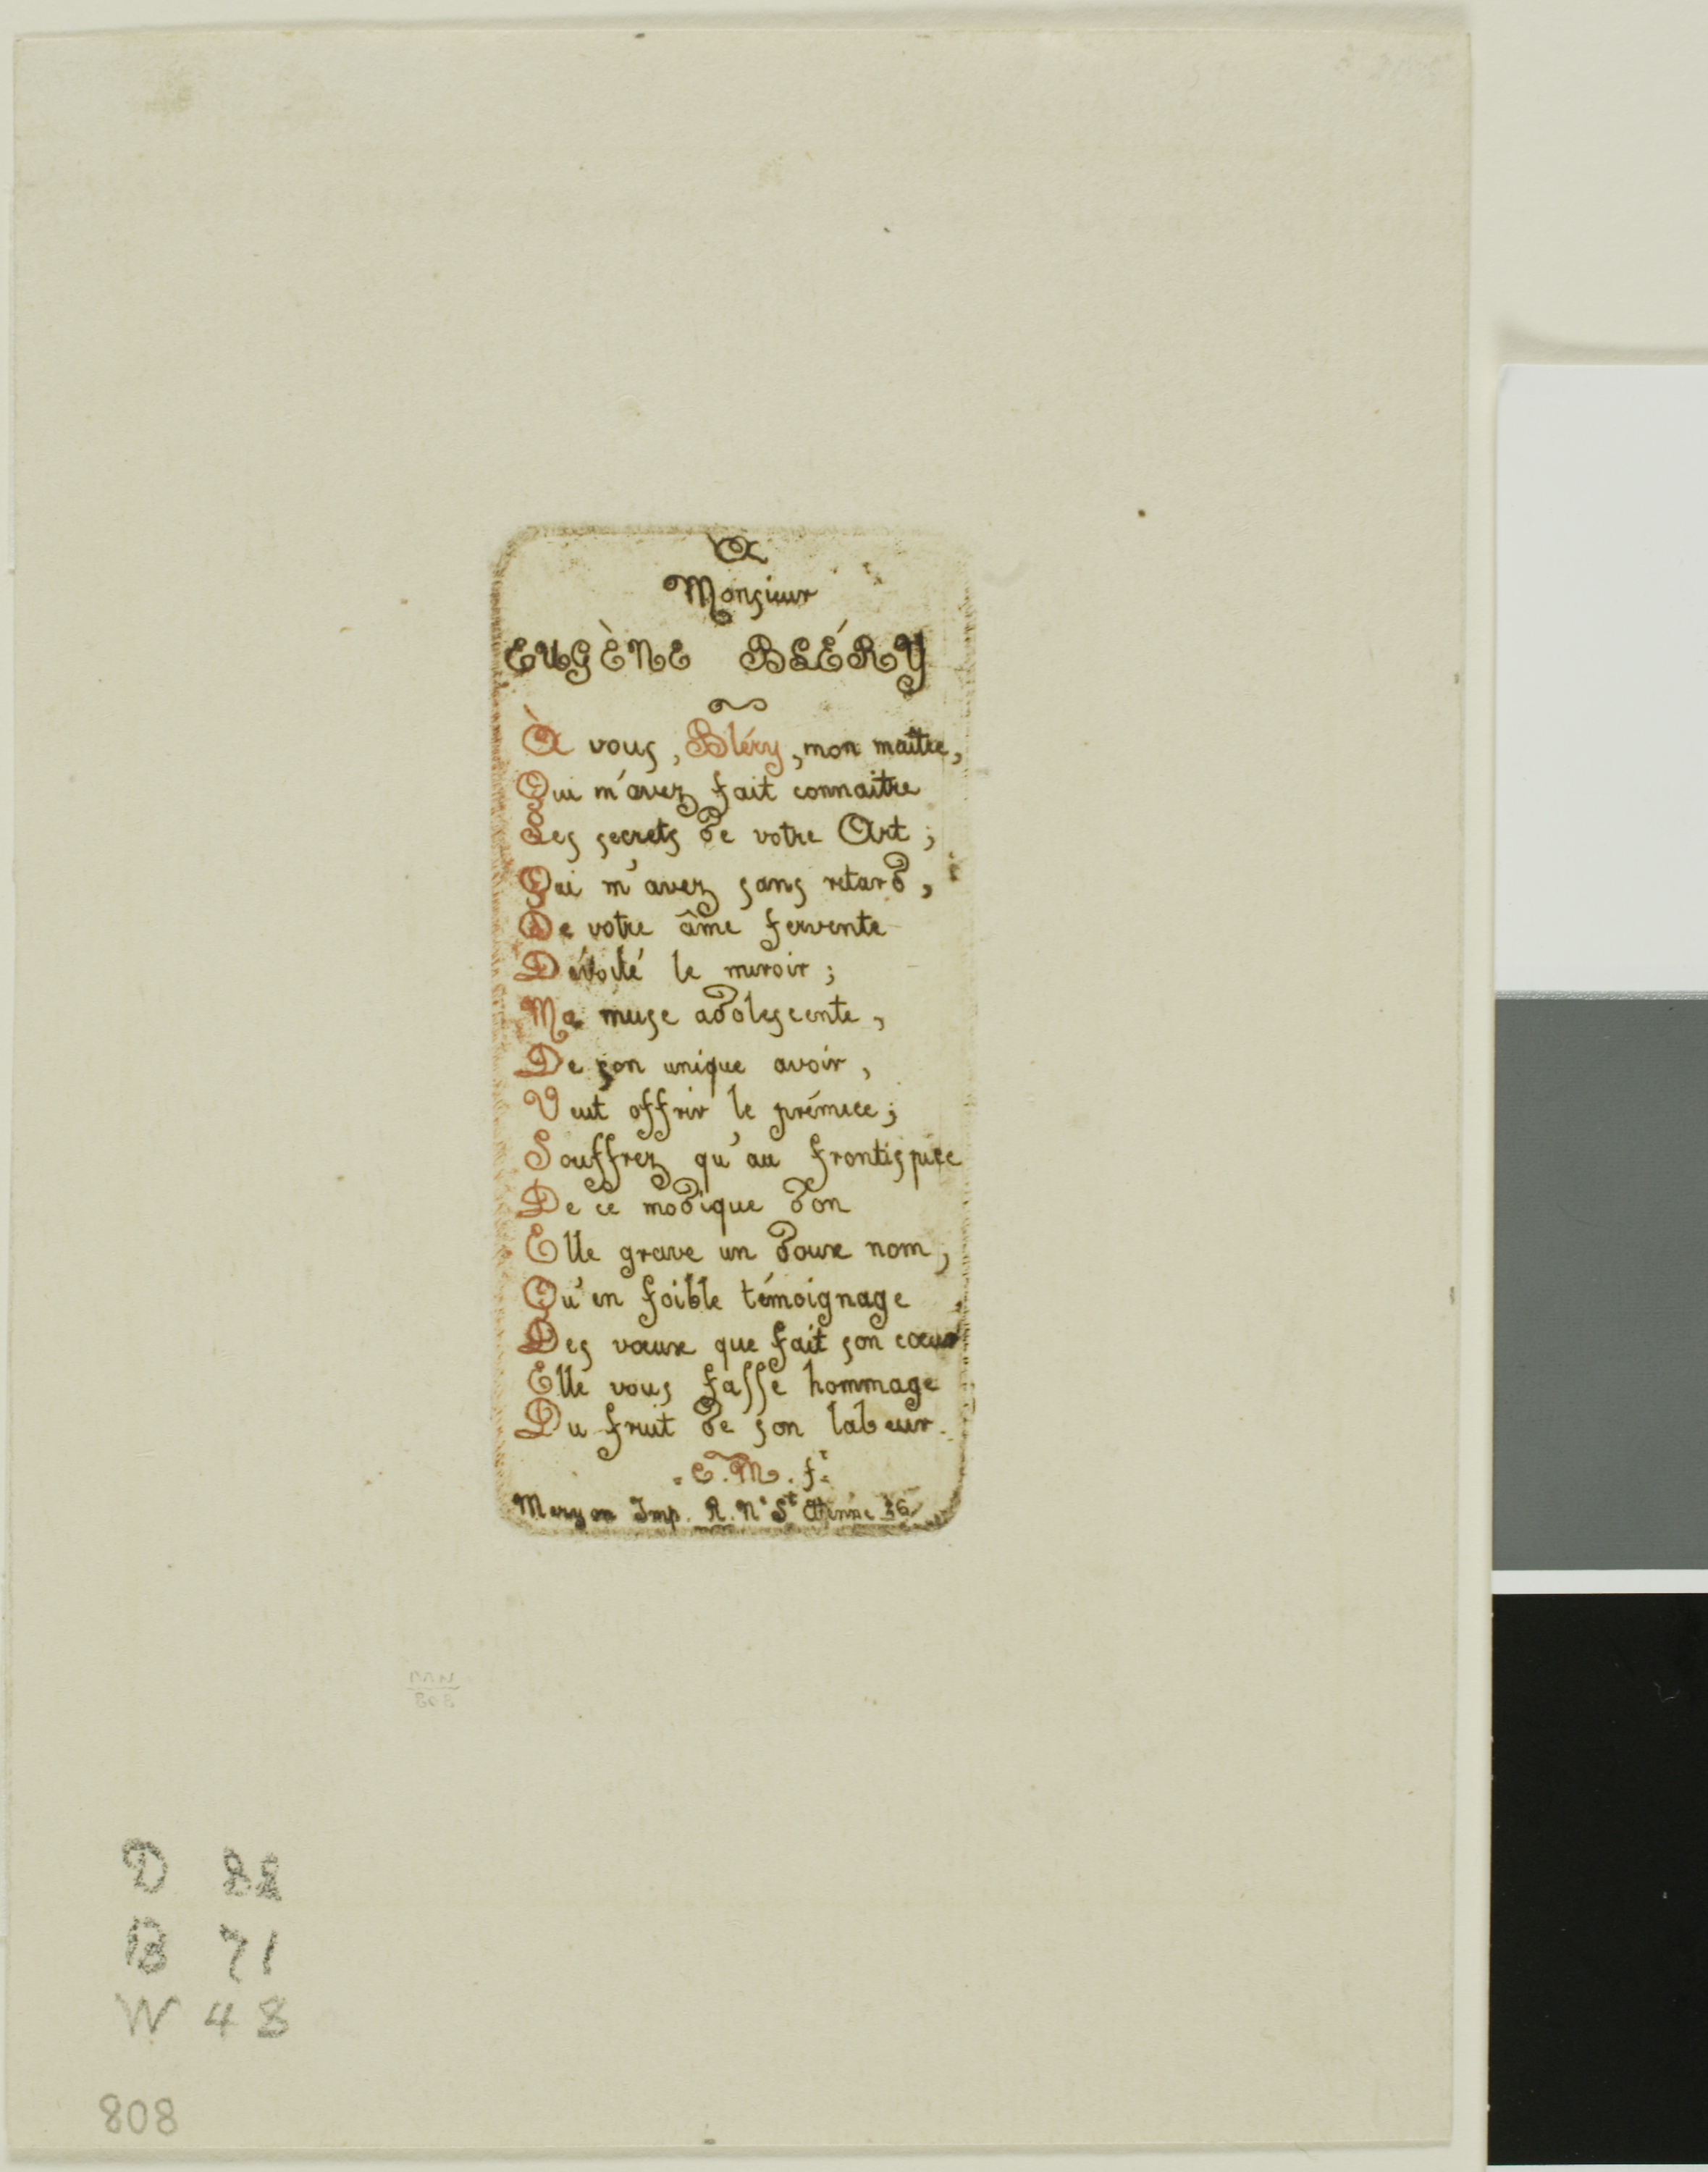 A
Monsieur
EUGÈNE BLÉRY
À vous, Bléry, mon maître,
Qui m'avez fait connaitre
Les secrets de votre Art;
Qui m'avez sans retard,
De votre âme fervente
Dévoilé le miroir;
Ma muse adolescente,
De son unique avoir,
Veut offrir le prémice;
Souffrez qu'au frontispice
De ce modique don
Elle grave un doux nom,
Qu'en foible témoignage
Des vœux que fait son cœur
Elle vous fasse hommage
Du fruit de son labeur.
C.M.f.
Meryon Imp. R. Nᵉ Sᵗ Etienne 26
D 88
B 71
W 48
808